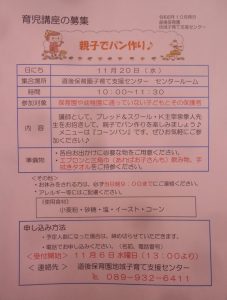 育児講座の募集
令和6年10月発行
道後保育園
地域子育て支援センター
親子でパン作り♪
日にち 11月20日(水)
集合場所 道後保育園子育て支援センター センタールーム
時間 10:00〜11:30
参加対象 保育園や幼稚園に通っていない子どもとその保護者
内容 講師として、ブレッド&スクール・K主宰
先生をお招きして、親子でパン作りを楽しみましょう♪
メニューは『コーンパン』です。ぜひお気軽にご参加ください♪
準備物 ・各自お出かけに必要な物をご用意ください。
・エプロンと三角巾(あればお子さんも)飲み物、手拭きタオルをご持参ください。
<その他>
・お休みをされる方は、必ず当日朝9:00までにご連絡ください。
・アレルギー等にはご配慮ください。
(使用食材)
小麦粉・砂糖・塩・イースト・コーン
申し込み方法
・予定人数になった場合は、締め切らせていただきます。
・電話でお申し込みください。(名前、電話番号)
<受付開始> 11月6日 水曜日(13:00より)
<連絡先> 道後保育園地域子育て支援センター
☎ 089-932-6411